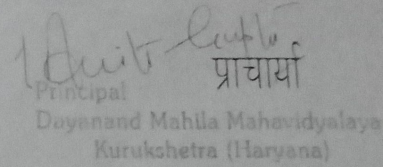 Gupta
प्राचार्या
Principal
Dayanand Mahila Mahavidyalaya
Kurukshetra (Haryana)